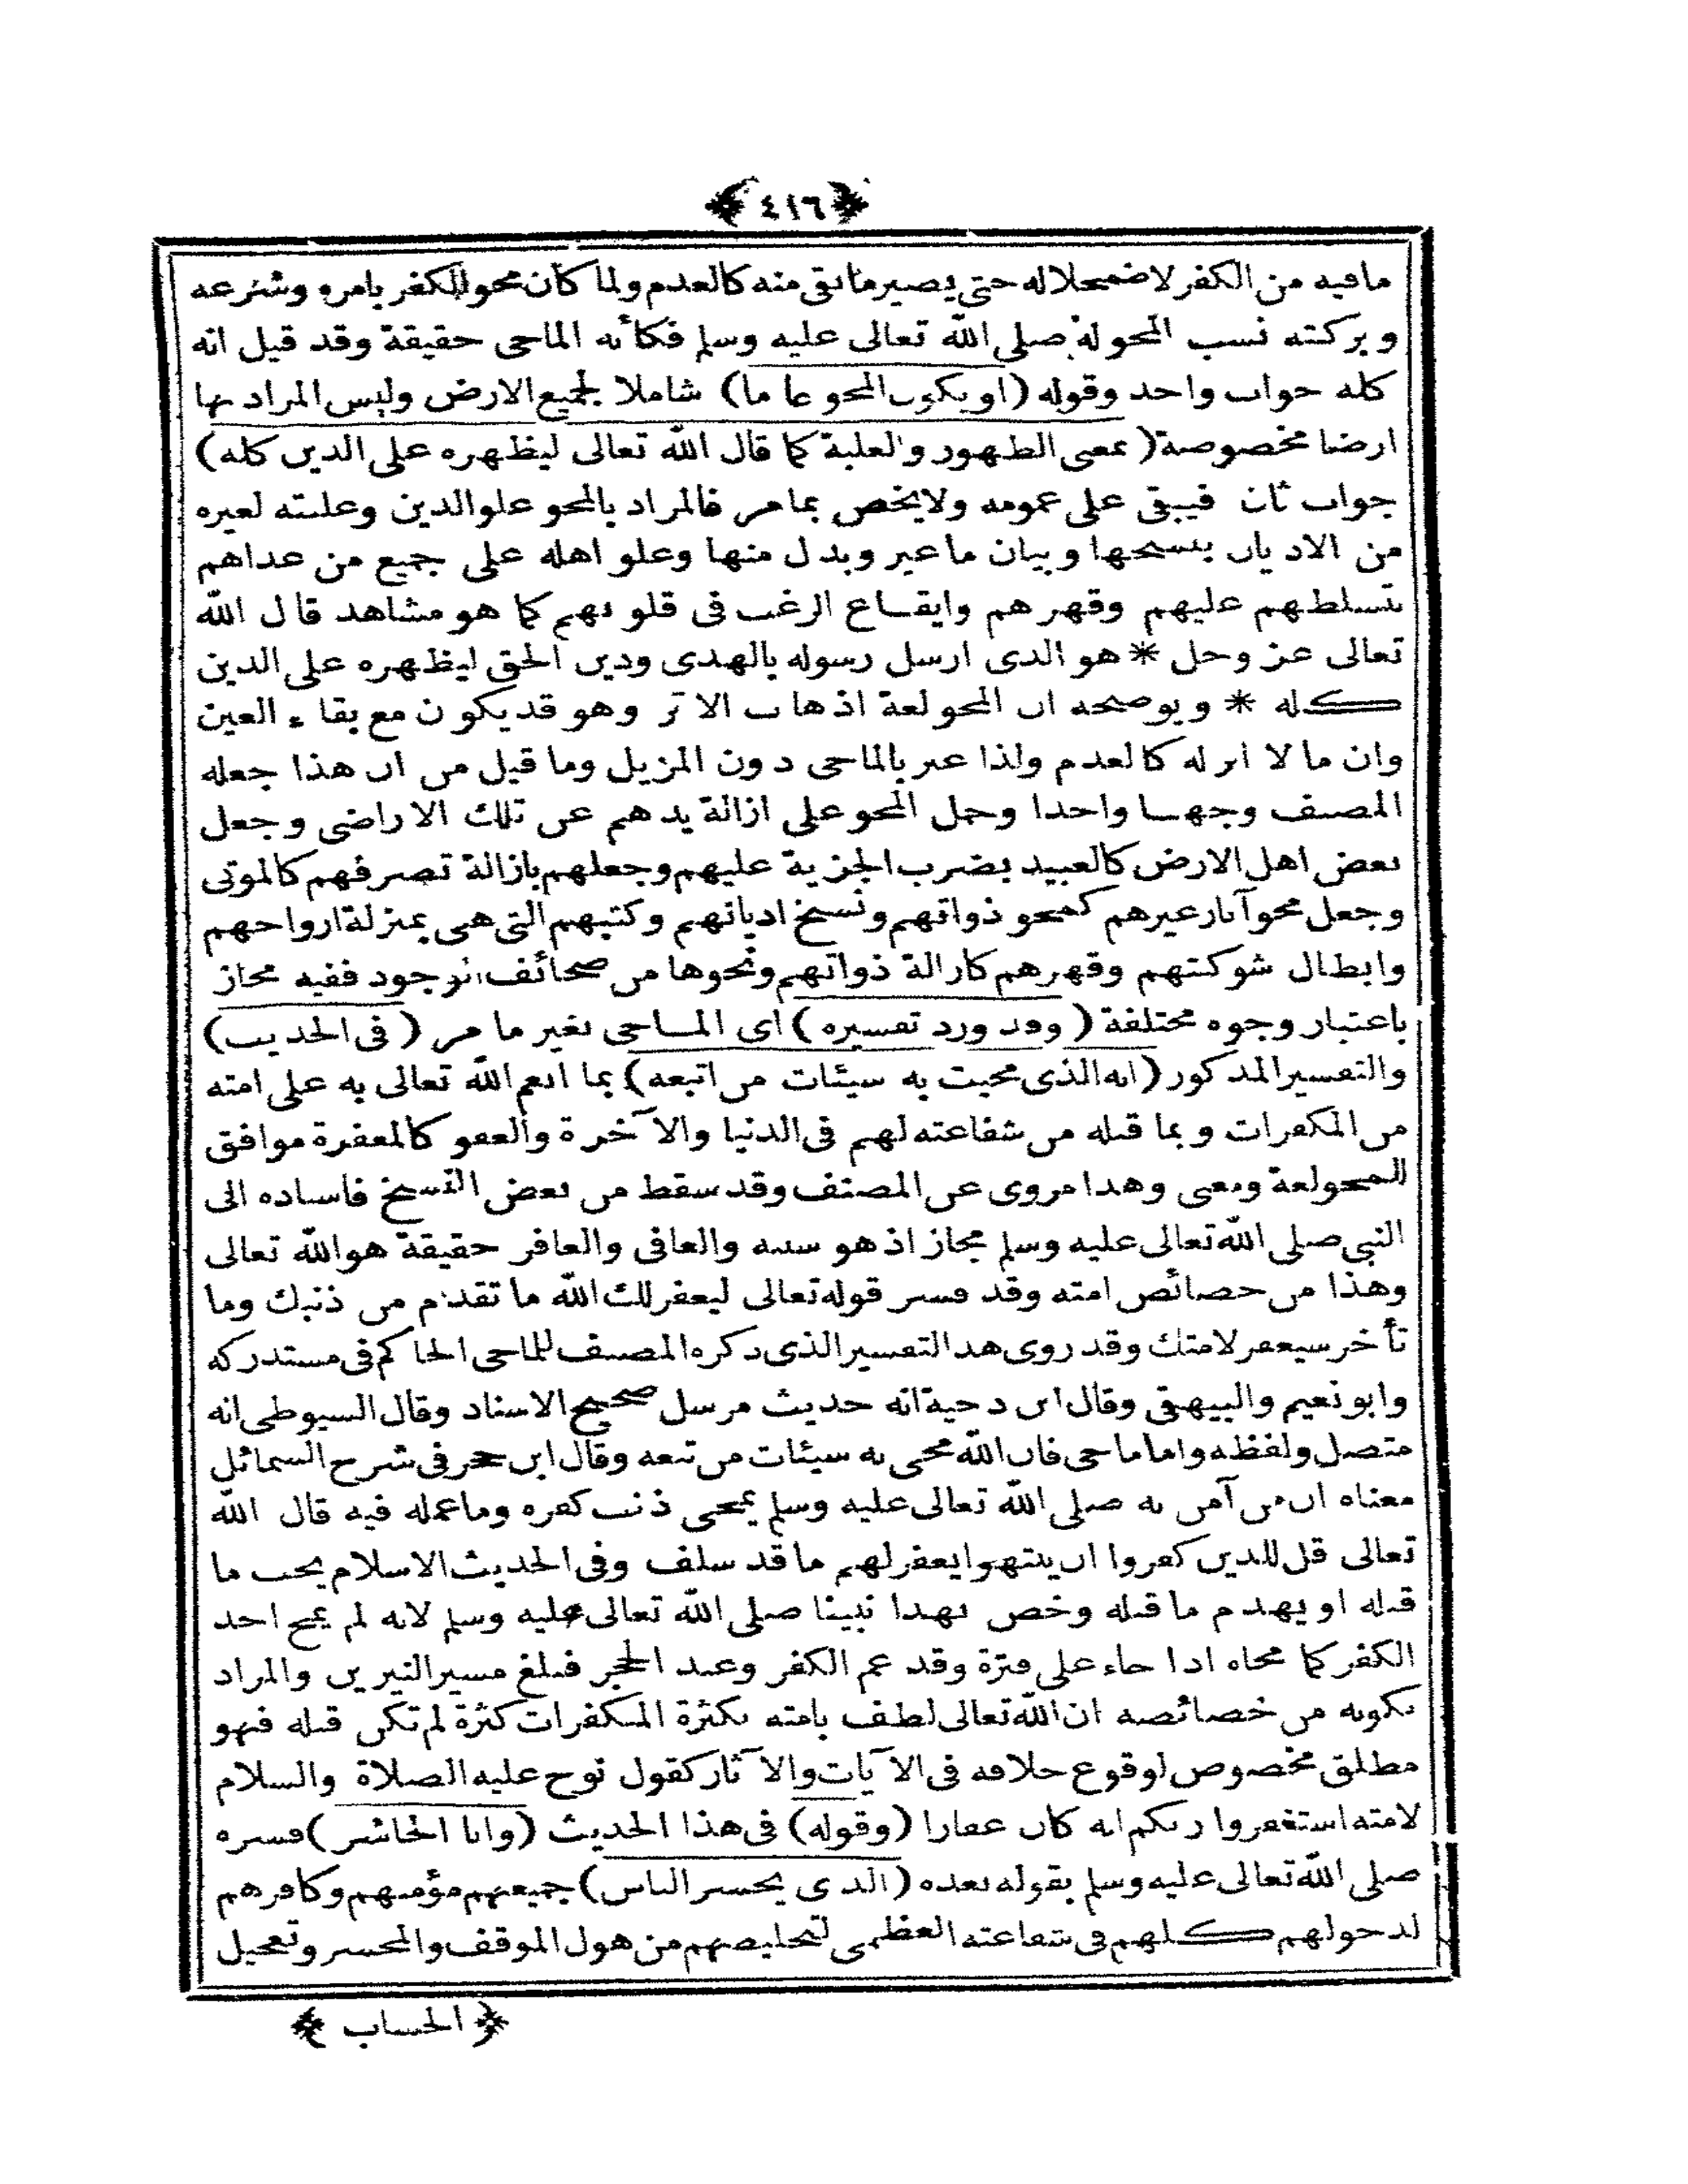 ﴿ ٤١٦ ﴾
مافيه من الكفر لاضمحلاله حتى يصير مابقى منه كالعدم ولما كان محو الكفر بامره وشرعه
وبركته نسب المحو له صلى الله تعالى عليه وسلم فكأنه الماحى حقيقة وقد قيل انه
كله جواب واحد وقوله (او يكون المحو عاما) شاملا لجميع الارض وليس المراد بها
ارضا مخصوصة (بمعنى الظهور والغلبة كما قال الله تعالى ليظهره على الدين كله)
جواب ثان فيبقى على عمومه ولايخص بمامر فالمراد بالمحو علو الدين وغلبته لغيره
من الاديان بنسخها وبيان ماغير وبدل منها وعلو اهله على جميع من عداهم
بتسلطهم عليهم وقهرهم وايقاع الرعب فى قلوبهم كما هو مشاهد قال الله
تعالى عز وجل * هو الذى ارسل رسوله بالهدى ودين الحق ليظهره على الدين
كله * ويوضحه ان المحو لغة اذهاب الاثر وهو قد يكون مع بقاء العين
وان ما لا اثر له كالعدم ولذا عبر بالماحى دون المزيل وما قيل من ان هذا جعله
المصنف وجها واحدا وحمل المحو على ازالة يدهم عن تلك الاراضى وجعل
بعض اهل الارض كالعبيد بضرب الجزية عليهم وجعلهم بازالة تصرفهم كالموتى
وجعل محو آثار غيرهم كمحو ذواتهم ونسخ اديانهم وكتبهم التى هى بمنزلة ارواحهم
وابطال شوكتهم وقهرهم كازالة ذواتهم ونحوها من صحائف الوجود ففيه مجاز
باعتبار وجوه مختلفة (وقد ورد تفسيره) اى الماحى بغير ما مر (فى الحديث)
والتفسير المذكور (انه الذى محيت به سيئات من اتبعه) بما انعم الله تعالى به على امته
من المكفرات وبما قبله من شفاعته لهم فى الدنيا والآخرة والعفو كالمغفرة موافق
للمحو لغة ومعنى وهذا مروى عن المصنف وقد سقط من بعض النسخ فاسناده الى
النبى صلى الله تعالى عليه وسلم مجاز اذ هو سببه والعافى والغافر حقيقة هو الله تعالى
وهذا من خصائص امته وقد فسر قوله تعالى ليغفر لك الله ما تقدم من ذنبك وما
تأخر سيغفر لامتك وقد روى هذ التفسير الذى ذكره المصنف للماحى الحاكم فى مستدركه
وابو نعيم والبيهقى وقال ابن دحية انه حديث مرسل صحيح الاسناد وقال السيوطى انه
متصل ولفظه واما ماحى فان الله محى به سيئات من تبعه وقال ابن حجر فى شرح الشمائل
معناه ان من آمن به صلى الله تعالى عليه وسلم يمحى ذنب كفره وما عمله فيه قال الله
تعالى قل للذين كفروا ان ينتهوا يغفر لهم ما قد سلف وفى الحديث الاسلام يجب ما
قبله او يهدم ما قبله وخص بهذا نبينا صلى الله تعالى عليه وسلم لانه لم يمح احد
الكفر كما محاه اذا جاء على فترة وقد عم الكفر وعبد الحجر فبلغ مسير النيرين والمراد
بكونه من خصائصه ان الله تعالى لطف بامته بكثرة المكفرات كثرة لم تكن قبله فهو
مطلق مخصوص لوقوع خلافه فى الآيات والآثار كقول نوح عليه الصلاة والسلام
لامته استغفروا ربكم انه كان غفارا (وقوله) فى هذا الحديث (وانا الحاشر) فسره
صلى الله تعالى عليه وسلم بقوله بعده (الذى يحشر الناس) جميعهم مؤمنهم وكافرهم
لدخولهم كلهم فى شفاعته العظمى لتخليصهم من هول الموقف والمحشر وتعجيل
﴿ الحساب ﴾